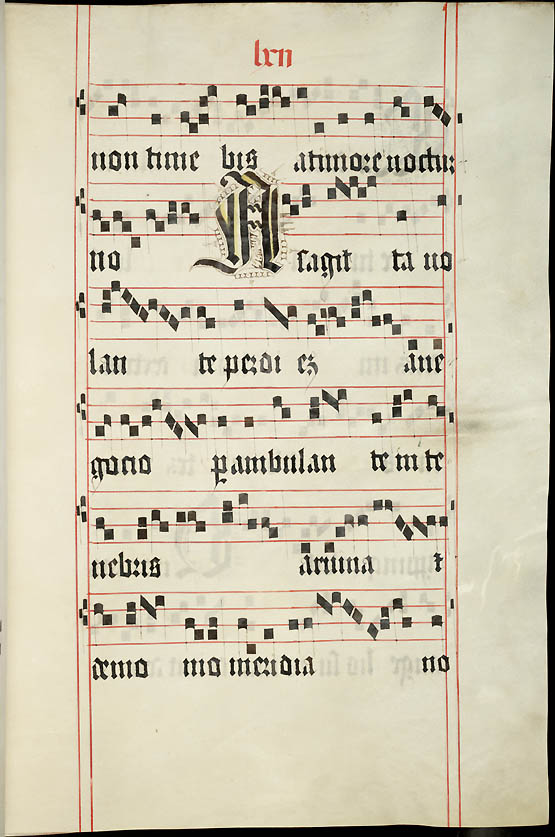 lxii
non time bis a timore noctur
no A sagit ta uo
lan te per di eʒ a ne
gocio ꝑambulan te in te
nebris a ruina ⁊
demo nio meridia no